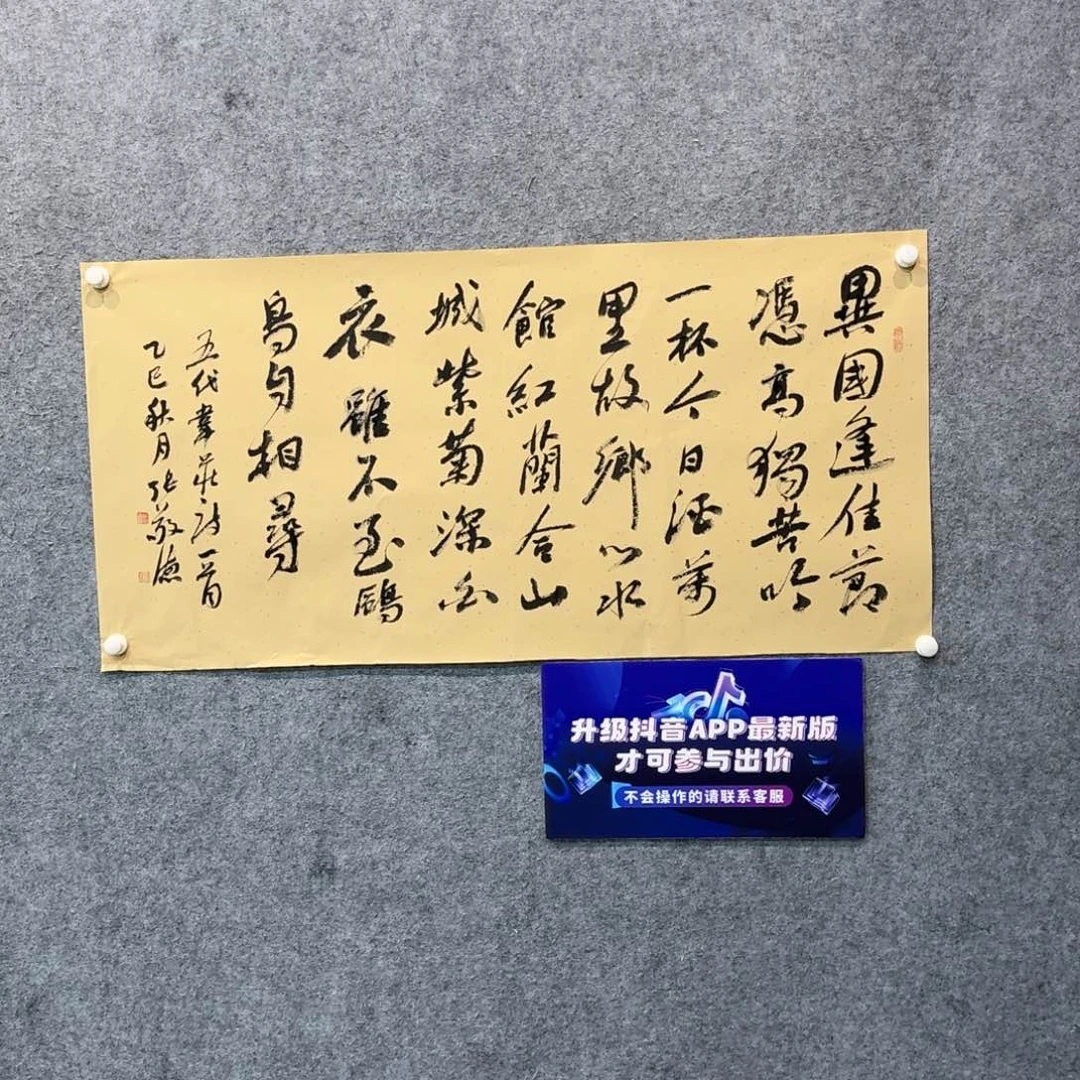 異國逢佳節
憑高獨苦吟
一杯今日酒萬
里故鄉心水
館紅蘭合山
城紫菊深白
衣雖不至鷗
鳥自相尋
五代韋莊詩一首
乙巳秋月張敬德
升级抖音APP最新版
才可参与出价
不会操作的请联系客服